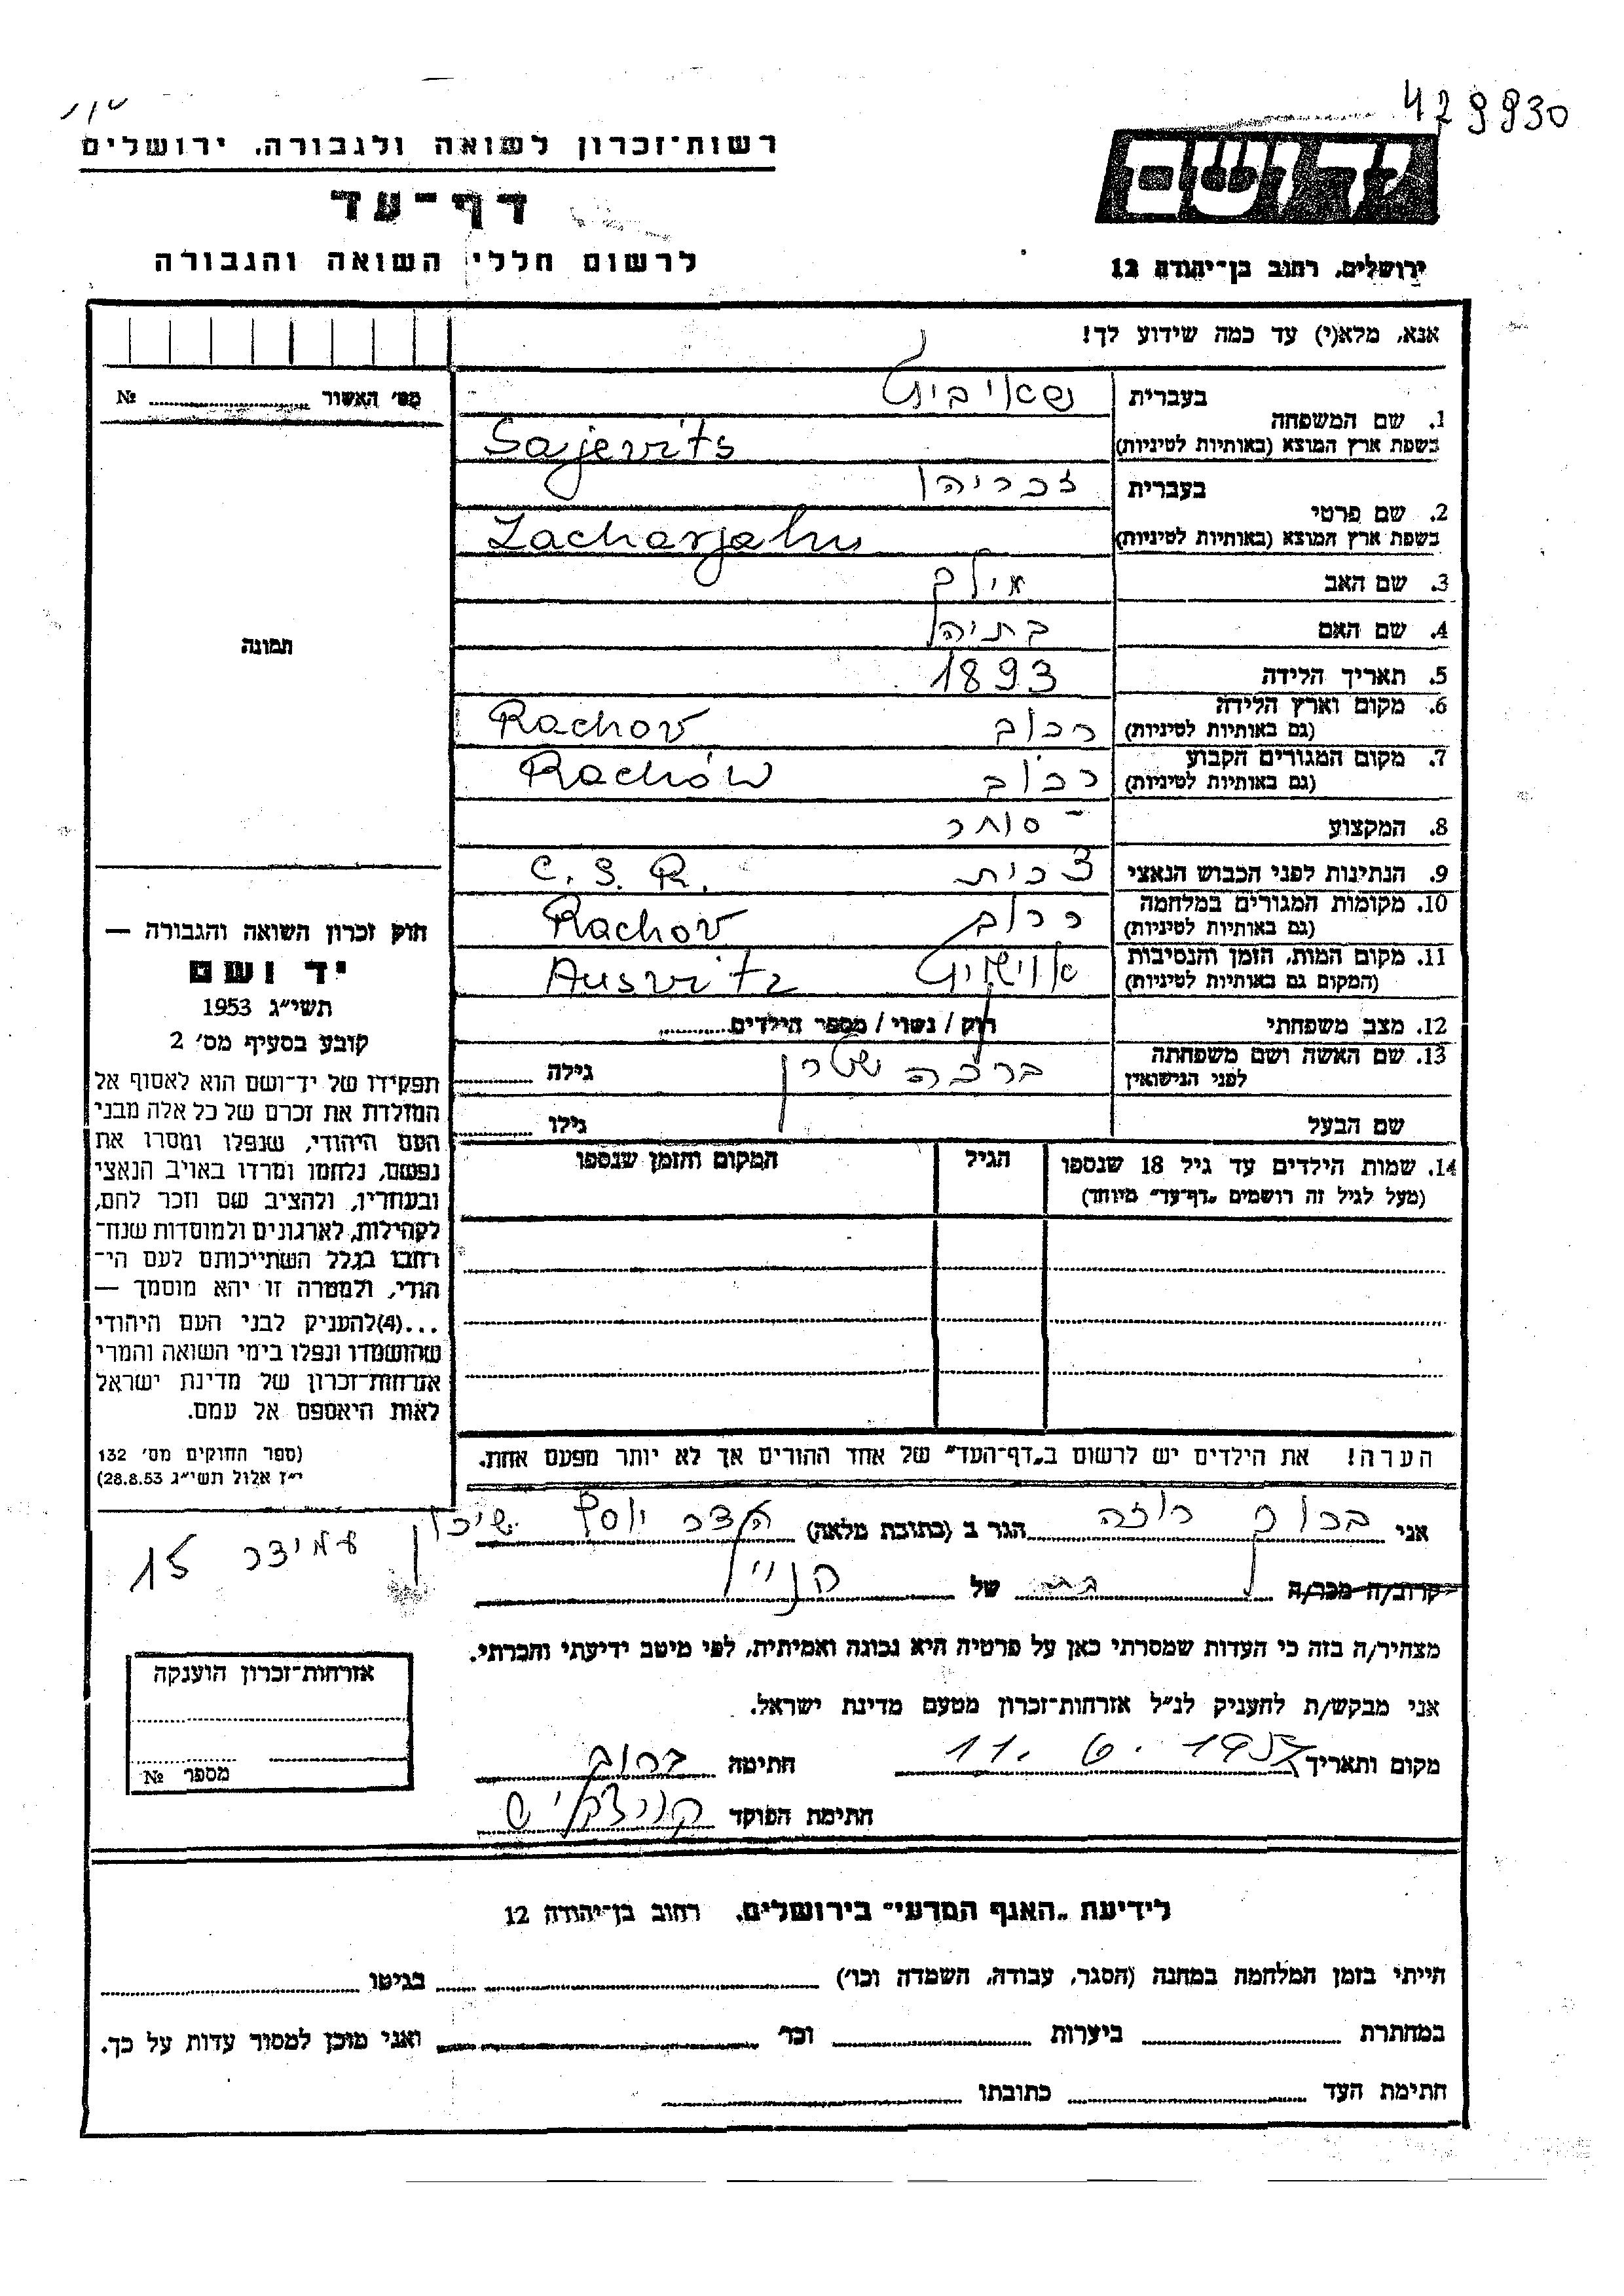 429930
רשות־זכרון לשואה ולגבורה, ירושלים
יד ושם
דף־עד
לרשום חללי השואה והגבורה
ירושלים, רחוב בן־יהודה 12
אנא, מלא(י) עד כמה שידוע לך!
מס' האשור № 
1. שם המשפחה
בעברית
בשפת ארץ המוצא (באותיות לטיניות)
Sajevits
2. שם פרטי
בעברית זכריהו
בשפת ארץ המוצא (באותיות לטיניות)
Zacharjahu
3. שם האב
4. שם האם בתיה
5. תאריך הלידה 1893
6. מקום וארץ הלידה
(גם באותיות לטיניות) רכוב Rachov
7. מקום המגורים הקבוע
(גם באותיות לטיניות) רכוב Rachów
8. המקצוע סוחר
9. הנתינות לפני הכבוש הנאצי צכית C. S. R.
10. מקומות המגורים במלחמה
(גם באותיות לטיניות) רכוב Rachov
11. מקום המות, הזמן והנסיבות
(המקום גם באותיות לטיניות) Ausvitz
12. מצב משפחתי רוק / נשוי / מספר הילדים
13. שם האשה ושם משפחתה
לפני הנישואין ברכה שטרן גילה
שם הבעל גילו
14. שמות הילדים עד גיל 18 שנספו
(מעל לגיל זה רושמים „דף־עד" מיוחד)
הגיל
המקום והזמן שנספו
הערה! את הילדים יש לרשום ב„דף־העד" של אחד ההורים אך לא יותר מפעם אחת.
תמונה
חוק זכרון השואה והגבורה —
יד ושם
תשי״ג 1953
קובע בסעיף מס' 2
תפקידו של יד־ושם הוא לאסוף אל
המולדת את זכרם של כל אלה מבני
העם היהודי, שנפלו ומסרו את
נפשם, נלחמו ומרדו באויב הנאצי
ובעוזריו, ולהציב שם וזכר להם,
לקהילות, לארגונים ולמוסדות שנח־
רבו בגלל השתייכותם לעם הי־
הודי, ולמטרה זו יהא מוסמך —
...(4)להעניק לבני העם היהודי
שהושמדו ונפלו בימי השואה והמרי
אזרחות־זכרון של מדינת ישראל
לאות היאספם אל עמם.
(ספר החוקים מס' 132
י״ז אלול תשי״ג 28.8.53)
אני ברוך רוזה הגר ב (כתובת מלאה) יוסף שיכון
עמידר 15
קרוב/ה מכר/ה בת של הנ״ל
מצהיר/ה בזה כי העדות שמסרתי כאן על פרטיה היא נכונה ואמיתית, לפי מיטב ידיעתי והכרתי.
אני מבקש/ת להעניק לנ״ל אזרחות־זכרון מטעם מדינת ישראל.
מקום ותאריך 11. 6. 1957 חתימה
חתימת הפוקד
אזרחות־זכרון הוענקה
מספר №
לידיעת „האגף המדעי" בירושלים, רחוב בן־יהודה 12
הייתי בזמן המלחמה במחנה (הסגר, עבודה, השמדה וכו') בגיטו
במחתרת ביערות וכו' ואני מוכן למסור עדות על כך.
חתימת העד כתובתו